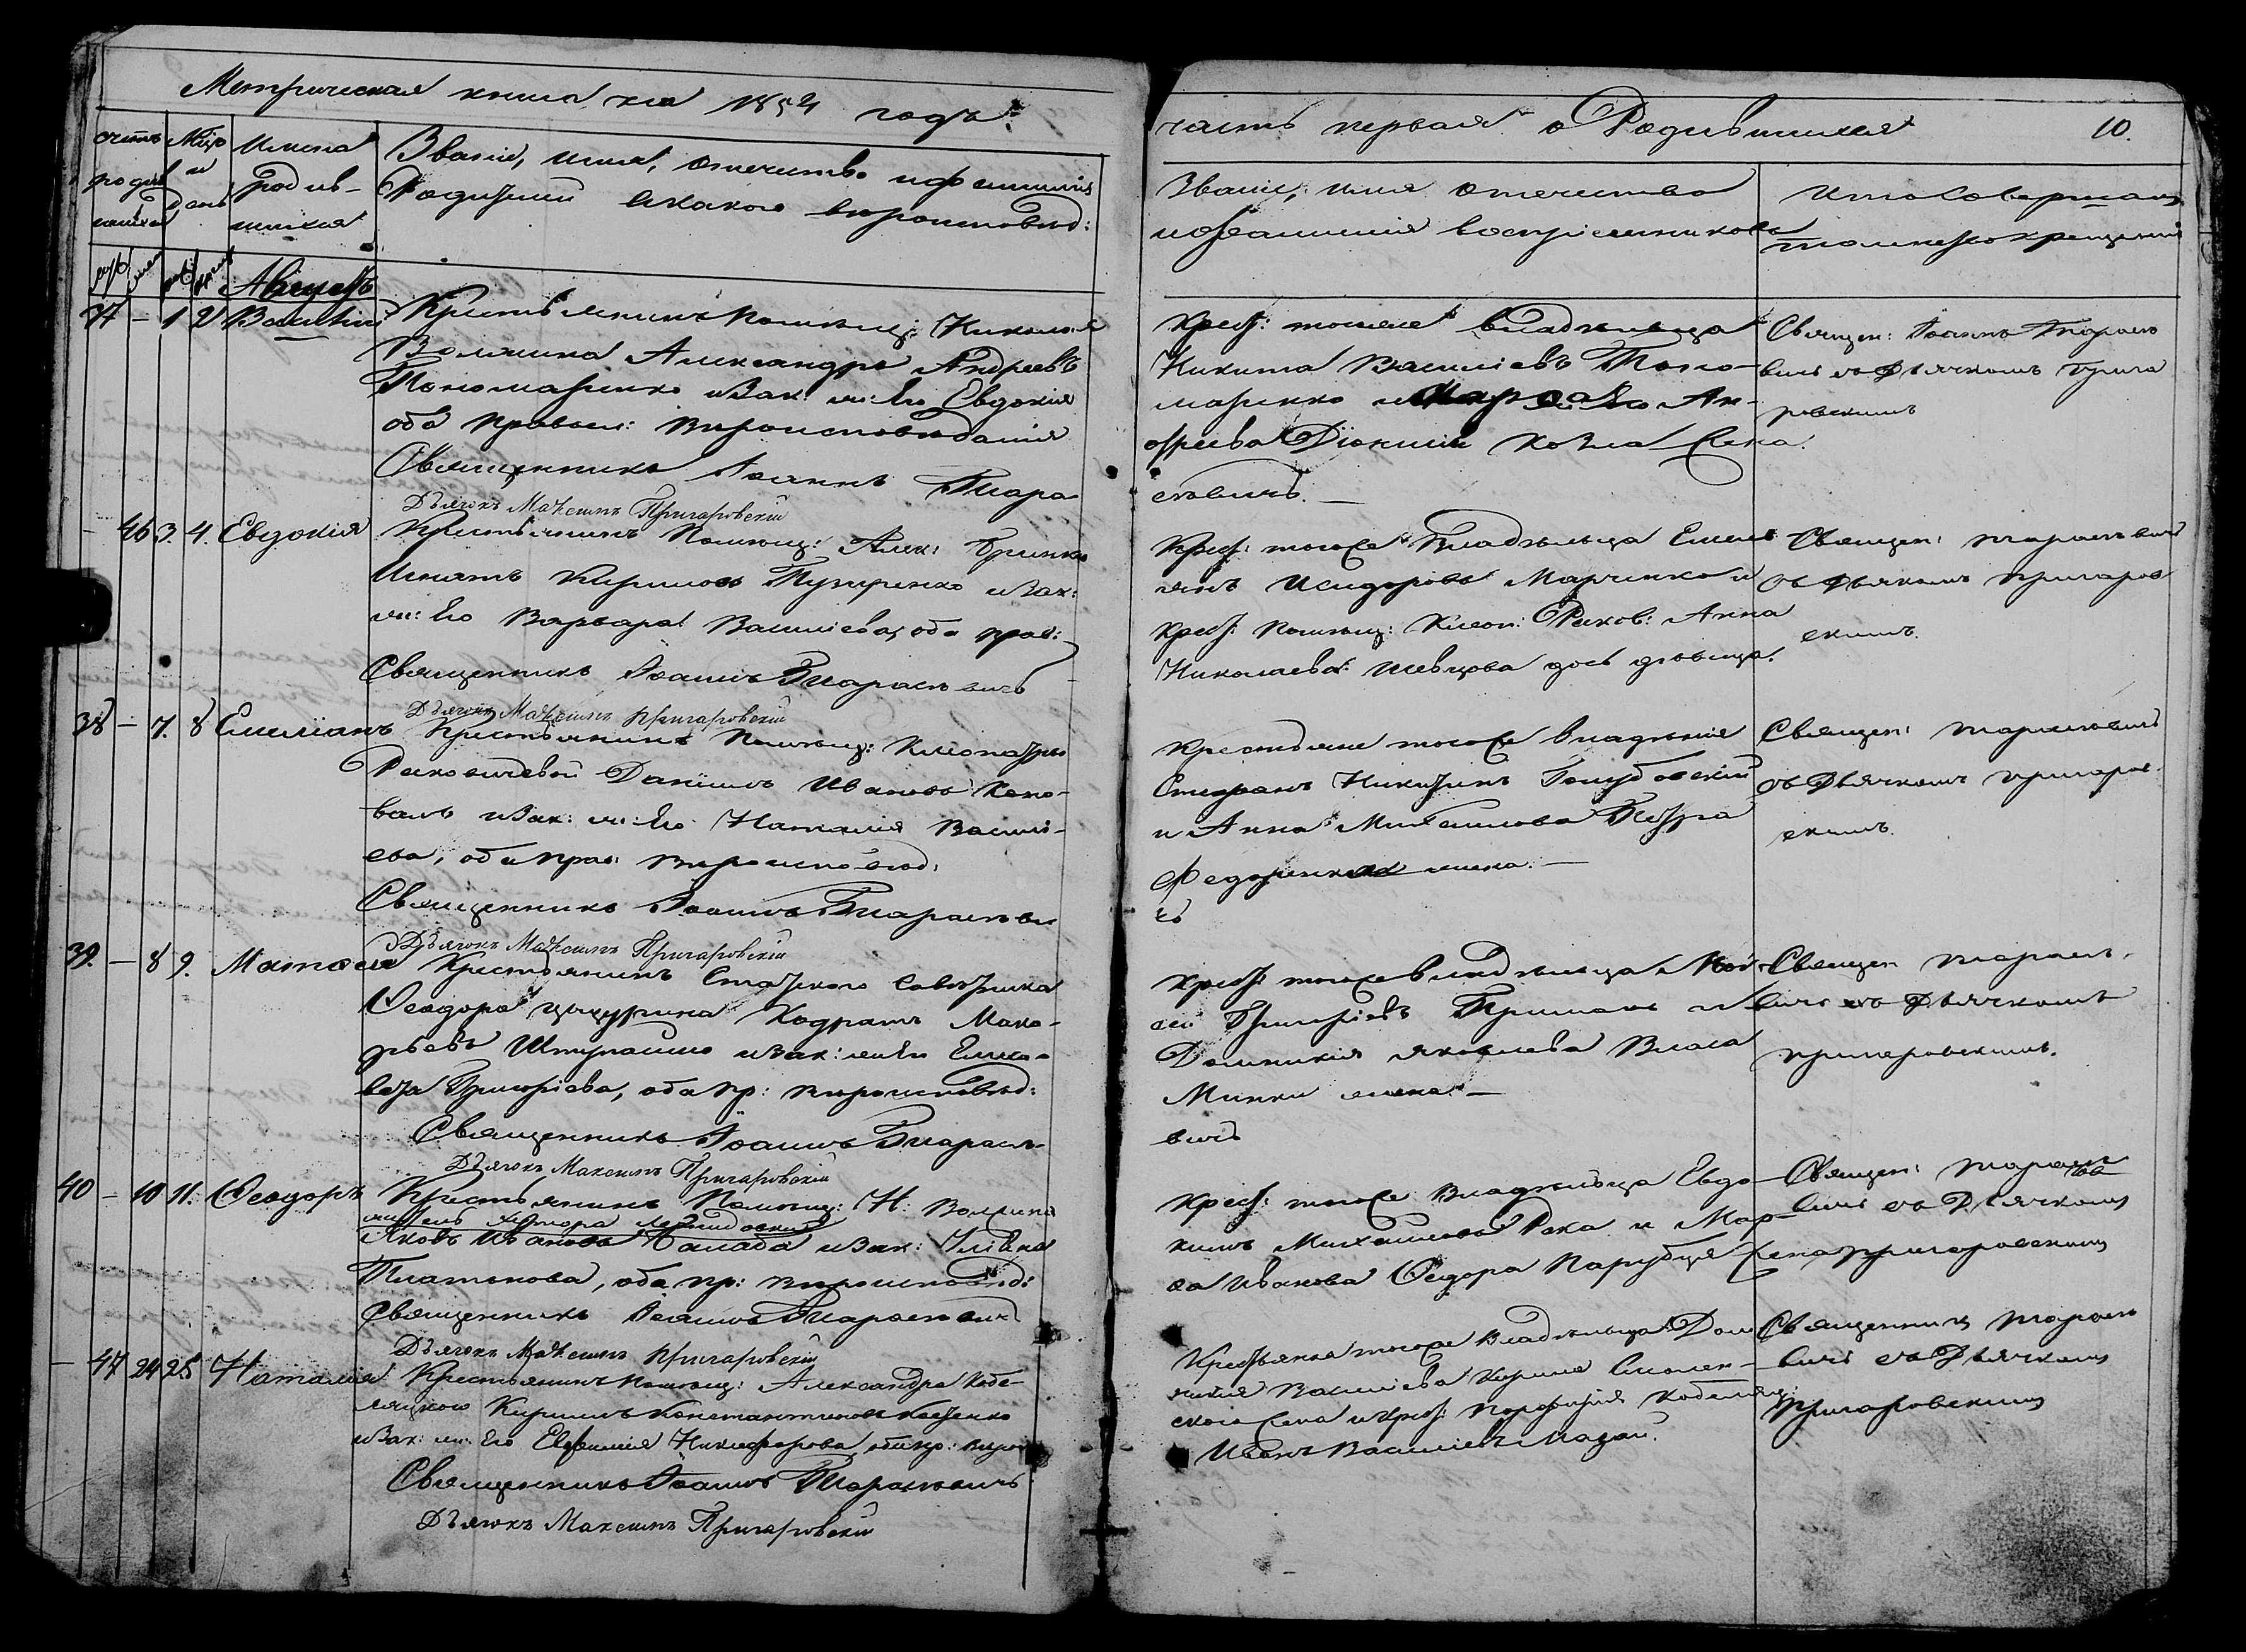 Метрическая книга на 1854 годъ
часть первая о Родившихся 10.
Счетъ родившихся
Мѣсяцъ и день
Имена родившихся
Званіе, имя, отечество и фамилія
Родителей и какого вѣроисповѣд:
Званіе, имя отечество
и фамилія воспріемниковъ
Кто совершалъ
таинство крещенія
Августъ
37 – 1 2 Василій
Крестьянинъ Помѣщ: Николая
Волчина Александръ Андреевъ
Пономаренко и Зак: ж: Его Евдокія
оба Правосл: Вѣроисповѣданія
Священникъ Іоаннъ Тара-
севичъ. —
Дьячокъ Маѯимъ Пригаровскій
Крест: тогоже владѣльца
Никита Василіевъ Поно-
маренко и Ан-
дреева Діонисія Козла жена.
Священ: Іоаннъ Тарасе
вичъ съ Дьячкомъ Прига
ровскимъ
– 46 3. 4. Евдокія
Крестьянинъ Помѣщ: Алек:
Игнатъ Кириловъ Пугиренко и Зак:
ж: Его Варвара Василіева, оба прав:
Священникъ Іоаннъ Тарасевичъ
Дьячокъ Маѯимъ Пригаровскій
Крест: тогоже Владѣльца Емел
янъ Исидоровъ Марченко и
Крест: Помѣщ: Клеоп: Раков: Анна
Николаева Шевцова дочь дѣвица.
Священ: Тарасевичъ
съ Дьячкомъ Пригаров
скимъ.
38 – 7. 8 Емеліанъ
Крестьянинъ Помѣщ: Клеопатры
Раковичевой Даніилъ Ивановъ Коно-
валъ и Зак: ж: Его Наталія Василі-
ева, оба прав: Вѣроисповѣд:
Священникъ Іоаннъ Тарасеви
чъ
Дьячокъ Маѯимъ Пригаровскій
Крестьяне тогоже владѣнія
Стефанъ Никитинъ Голубовскій
и Анна Михаилова Петра
Федоренка жена. —
Священ: Тарасевичъ
съ Дьячкомъ Пригаров
скимъ.
39. – 8 9. Матѳей
Крестьянинъ Статского Совѣтника
Ѳеодора Цыцурина Кодратъ Мака-
рьевъ и Зак: ж: Его Елиса-
вета Григоріева, оба пр: вѣроисповѣд:
Священникъ Іоаннъ Тарасе-
вичъ
Дьячокъ Максимъ Пригаровскій
Крест: тогоже владѣльца Мой-
сей Григоріевъ и
Домникія Яковлева Власа
Минки жена. —
Священ: Тарасе-
вичъ съ Дьячкомъ
Пригаровскимъ.
40 – 10 11. Ѳеодоръ
Крестьянинъ Помѣщ: Н: Волчина
житель хутора
Яковъ Ивановъ и Зак: Уліяна
Платонова, оба пр: вѣроисповѣд:
Священникъ Іоаннъ Тарасевичъ
Дьячокъ Маѯимъ Пригаровскій
Крест: тогоже Владѣльца Евдо-
кимъ Михайловъ Река и Мар-
ѳа Иванова Ѳедора Парубця жена
Священ: Тарасе
вичъ съ Дьячкомъ
Пригаровскимъ
– 47 24 25 Наталія
Крестьянинъ Помѣщ: Александра Кобе-
ляцкого Кирилъ Константиновъ
и Зак: ж: Его Евфимія Никифорова, оба пр: вѣро
Священникъ Іоаннъ Тарасевичъ
Дьячокъ Максимъ Пригаровскій
Крестьянка тогоже Владѣльца Дом
никія Василіева Корнія Смолен-
ского жена и Крест: Порфирія Кобеляц:
Иванъ Василіевъ Мазан.
Священникъ Тарасе
вичъ съ Дьячкомъ
Пригаровскимъ